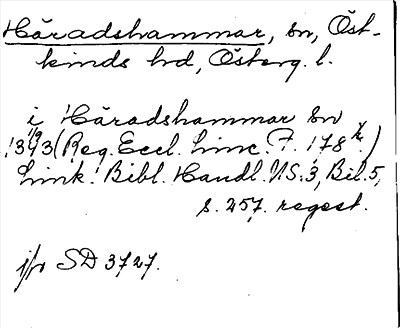 Häradshammar, sn, Öst-
kinds hd, Österg. l.
i Häradshammar sn
1/9
1343 (Reg. Eccl. Linc. F. 178 r.)
Link. Bibl. Handl. NS: 3, Bil. 5,
s. 257. regest.
jfr SD 3727.